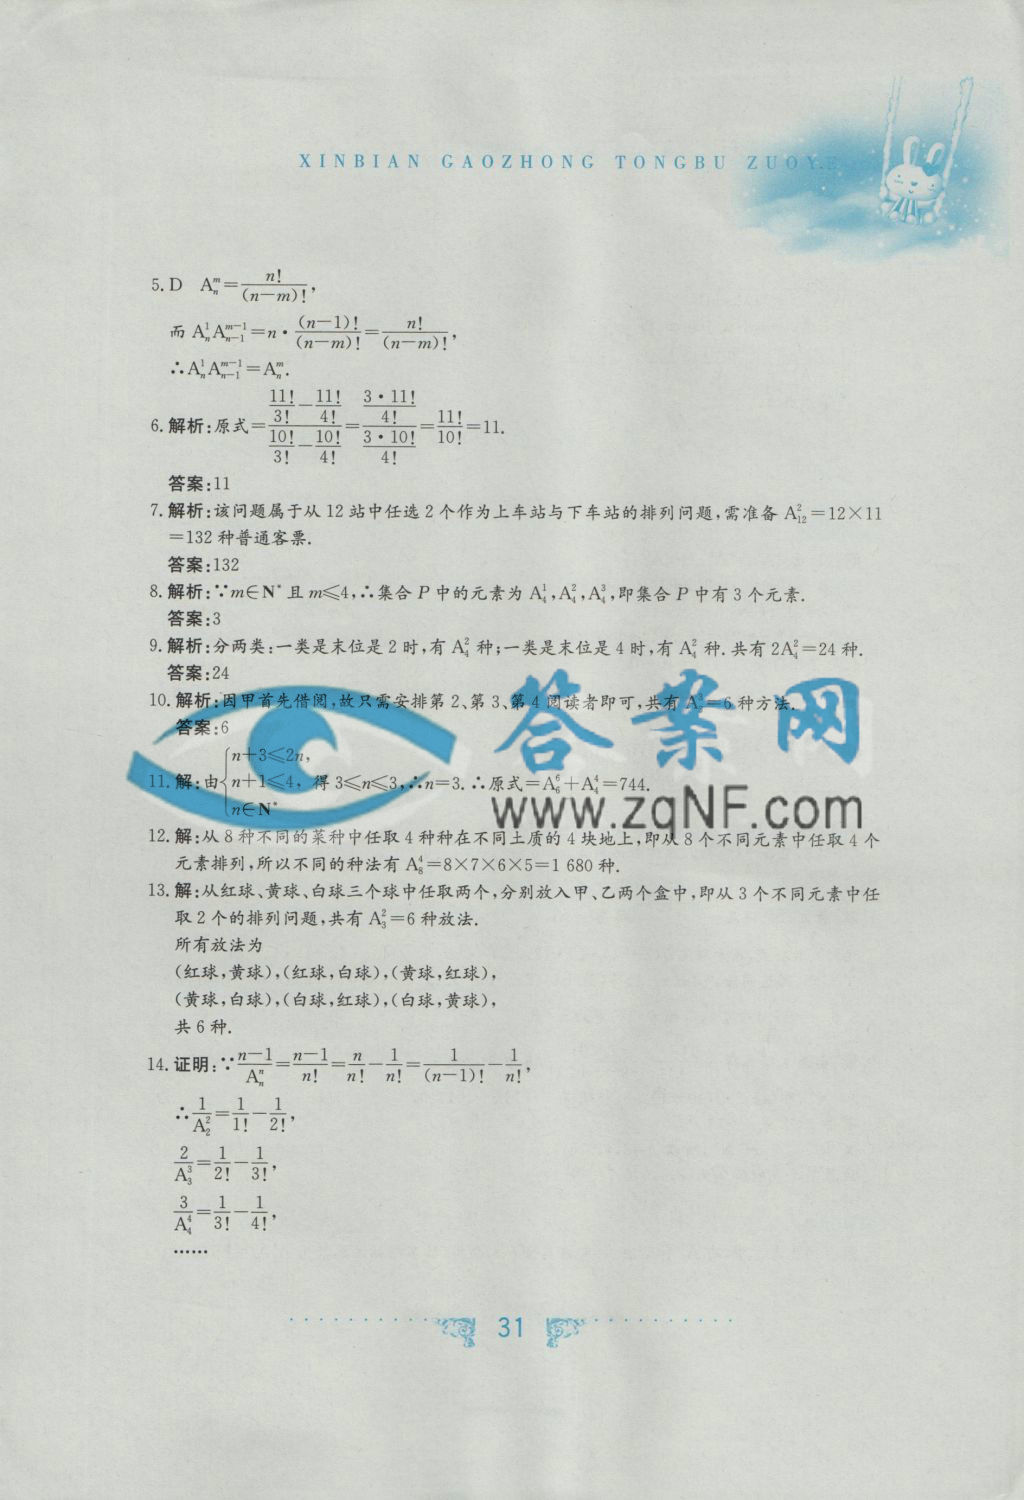 XINBIAN GAOZHONG TONGBU ZUOYE
5. D A_n^m=n!/(n-m)!,
而 A_n^1A_{n-1}^{m-1}=n·(n-1)!/(n-m)!=n!/(n-m)!,
∴A_n^1A_{n-1}^{m-1}=A_n^m.
6. 解析:原式=(11!/3!-11!/4!)/(10!/3!-10!/4!)=(3·11!/4!)/(3·10!/4!)=11!/10!=11.
答案:11
7. 解析:该问题属于从 12 站中任选 2 个作为上车站与下车站的排列问题,需准备 A_{12}^2=12×11
=132 种普通客票.
答案:132
8. 解析:∵m∈N* 且 m≤4,∴集合 P 中的元素为 A_4^1,A_4^2,A_4^3,即集合 P 中有 3 个元素.
答案:3
9. 解析:分两类:一类是末位是 2 时,有 A_4^2 种;一类是末位是 4 时,有 A_4^2 种.共有 2A_4^2=24 种.
答案:24
10. 解析:因甲首先借阅,故只需安排第 2、第 3、第 4 阅读者即可,共有 A_3^3=6 种方法.
答案:6
11. 解:由{n+3≤2n, n+1≤4, n∈N* 得 3≤n≤3,∴n=3.∴原式=A_6^6+A_4^4=744.
12. 解:从 8 种不同的菜种中任取 4 种种在不同土质的 4 块地上,即从 8 个不同元素中任取 4 个
元素排列,所以不同的种法有 A_8^4=8×7×6×5=1 680 种.
13. 解:从红球、黄球、白球三个球中任取两个,分别放入甲、乙两个盒中,即从 3 个不同元素中任
取 2 个的排列问题,共有 A_3^2=6 种放法.
所有放法为
(红球,黄球),(红球,白球),(黄球,红球),
(黄球,白球),(白球,红球),(白球,黄球),
共 6 种.
14. 证明:∵(n-1)/A_n^n=(n-1)/n!=n/n!-1/n!=1/(n-1)!-1/n!,
∴1/A_2^2=1/1!-1/2!,
2/A_3^3=1/2!-1/3!,
3/A_4^4=1/3!-1/4!,
……
31
答案网
www.zqNF.com